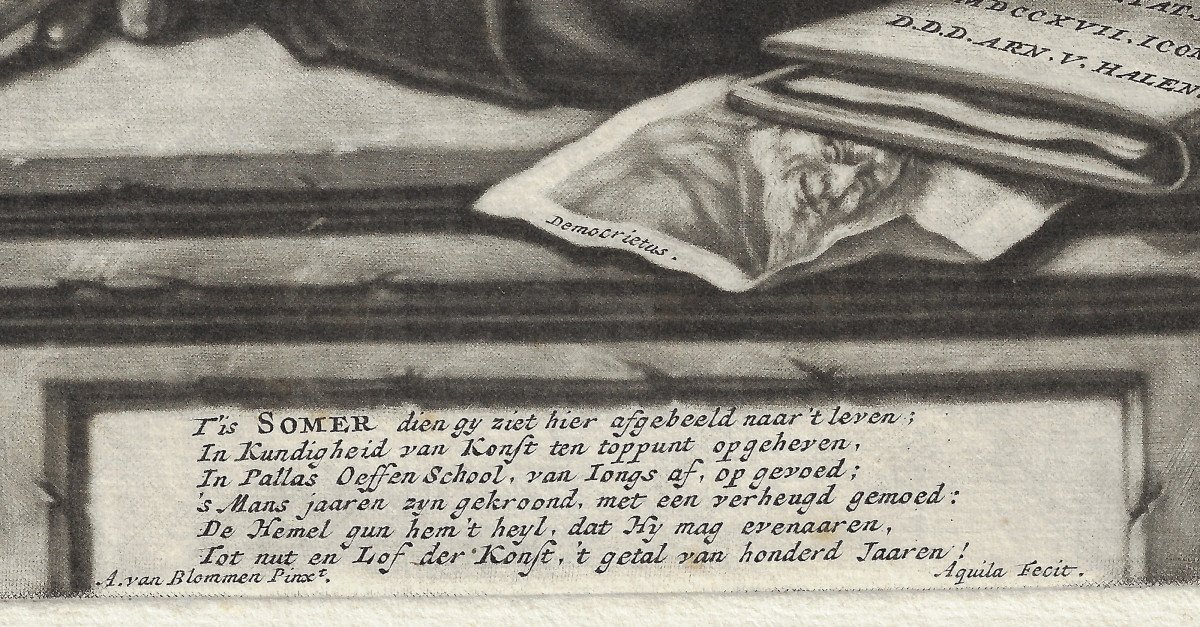 TAT
MDCCXVII. ICON
D.D.D. ARN. V. HALEN.
Democrietus.
T'is SOMER dien gy ziet hier afgebeeld naar 't leven;
In Kundigheid van Konſt ten toppunt opgeheven,
In Pallas Oeffen School, van Iongs af, op gevoed;
's Mans jaaren zyn gekroond, met een verheugd gemoed:
De Hemel gun hem 't heyl, dat Hy mag evenaaren,
Tot nut en Lof der Konſt, 't getal van honderd Jaaren!
A. van Blommen Pinxt.
Aquila Fecit.